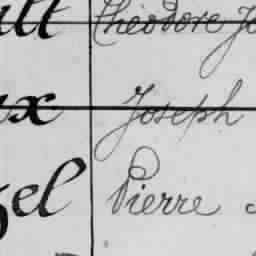 ult Théodore Jo
ux Joseph
zel Pierre